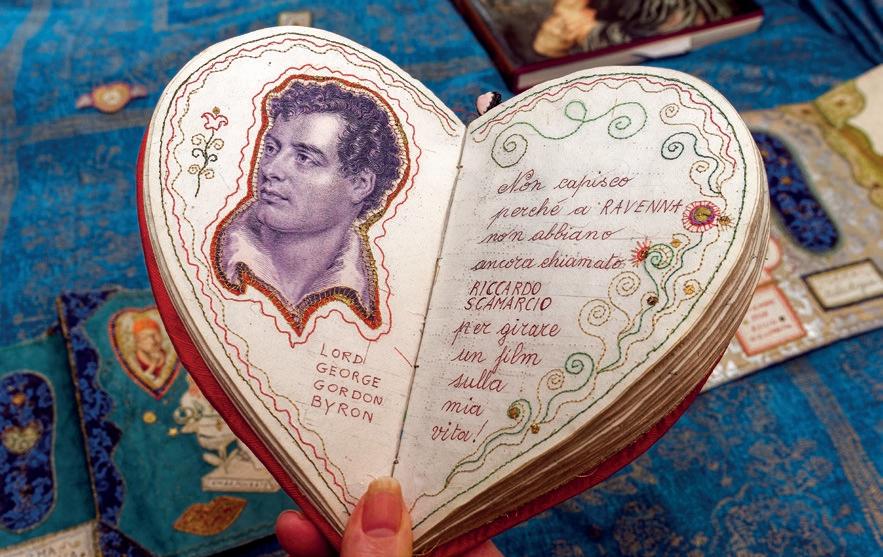 LORD
GEORGE
GORDON
BYRON
Non capisco
perché a RAVENNA
non abbiano
ancora chiamato
RICCARDO
SCAMARCIO
per girare
un film
sulla
mia
vita!